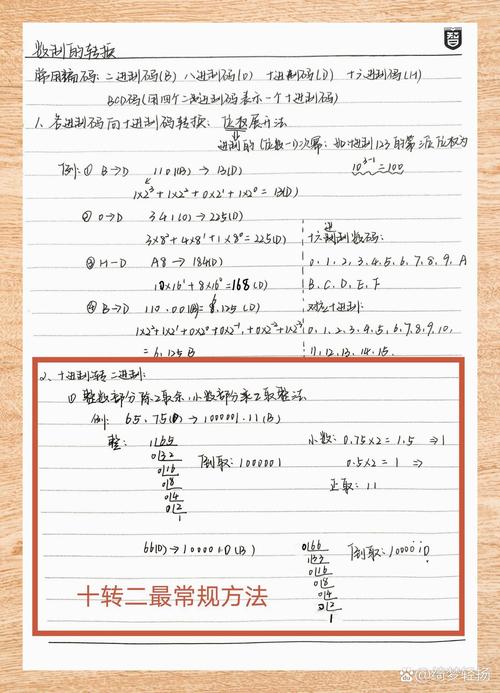 智
数制的转换
常用编码：二进制码(B) 八进制码(O) 十进制码(D) 十六进制码(H)
BCD码(用四个二进制码表示一个十进制码)
1. 各进制码向十进制码转换：位权展开法
进制的(位数-1)次幂：如十进制123的第三位位权为
10³⁻¹=100
例：① B→D 1101(B) → 13(D)
1×2³+1×2²+0×2¹+1×2⁰=13(D)
② O→D 341(O) → 225(D)
3×8²+4×8¹+1×8⁰=225(D)
③ H-D A8 → 184(D)
10×16¹+8×16⁰=168(D)
④ B→D 110.001(B)=6.125(D)
1×2²+1×2¹+0×2⁰+0×2⁻¹+0×2⁻²+1×2⁻³
=6.125B
十六进制数码：
0、1、2、3、4、5、6、7、8、9、A
B、C、D、E、F
对应十进制：
0、1、2、3、4、5、6、7、8、9、10、
11、12、13、14、15.
2、十进制转二进制：
① 整数部分除2取余，小数部分乘2取整法
例：65.75(D)→1000001.11(B)
整：
1|65
0|32
0|16
0|8
0|4
0|2
1
倒取：1000001
小数：0.75×2=1.5 ⇒1
0.5×2=1 ⇒
正取：11
66(D)→1000010(B)
0|66
1|33
0|16
0|8
0|4
0|2
1
倒取：1000010
十转二最常规方法
Bai百度 @绮梦轻扬